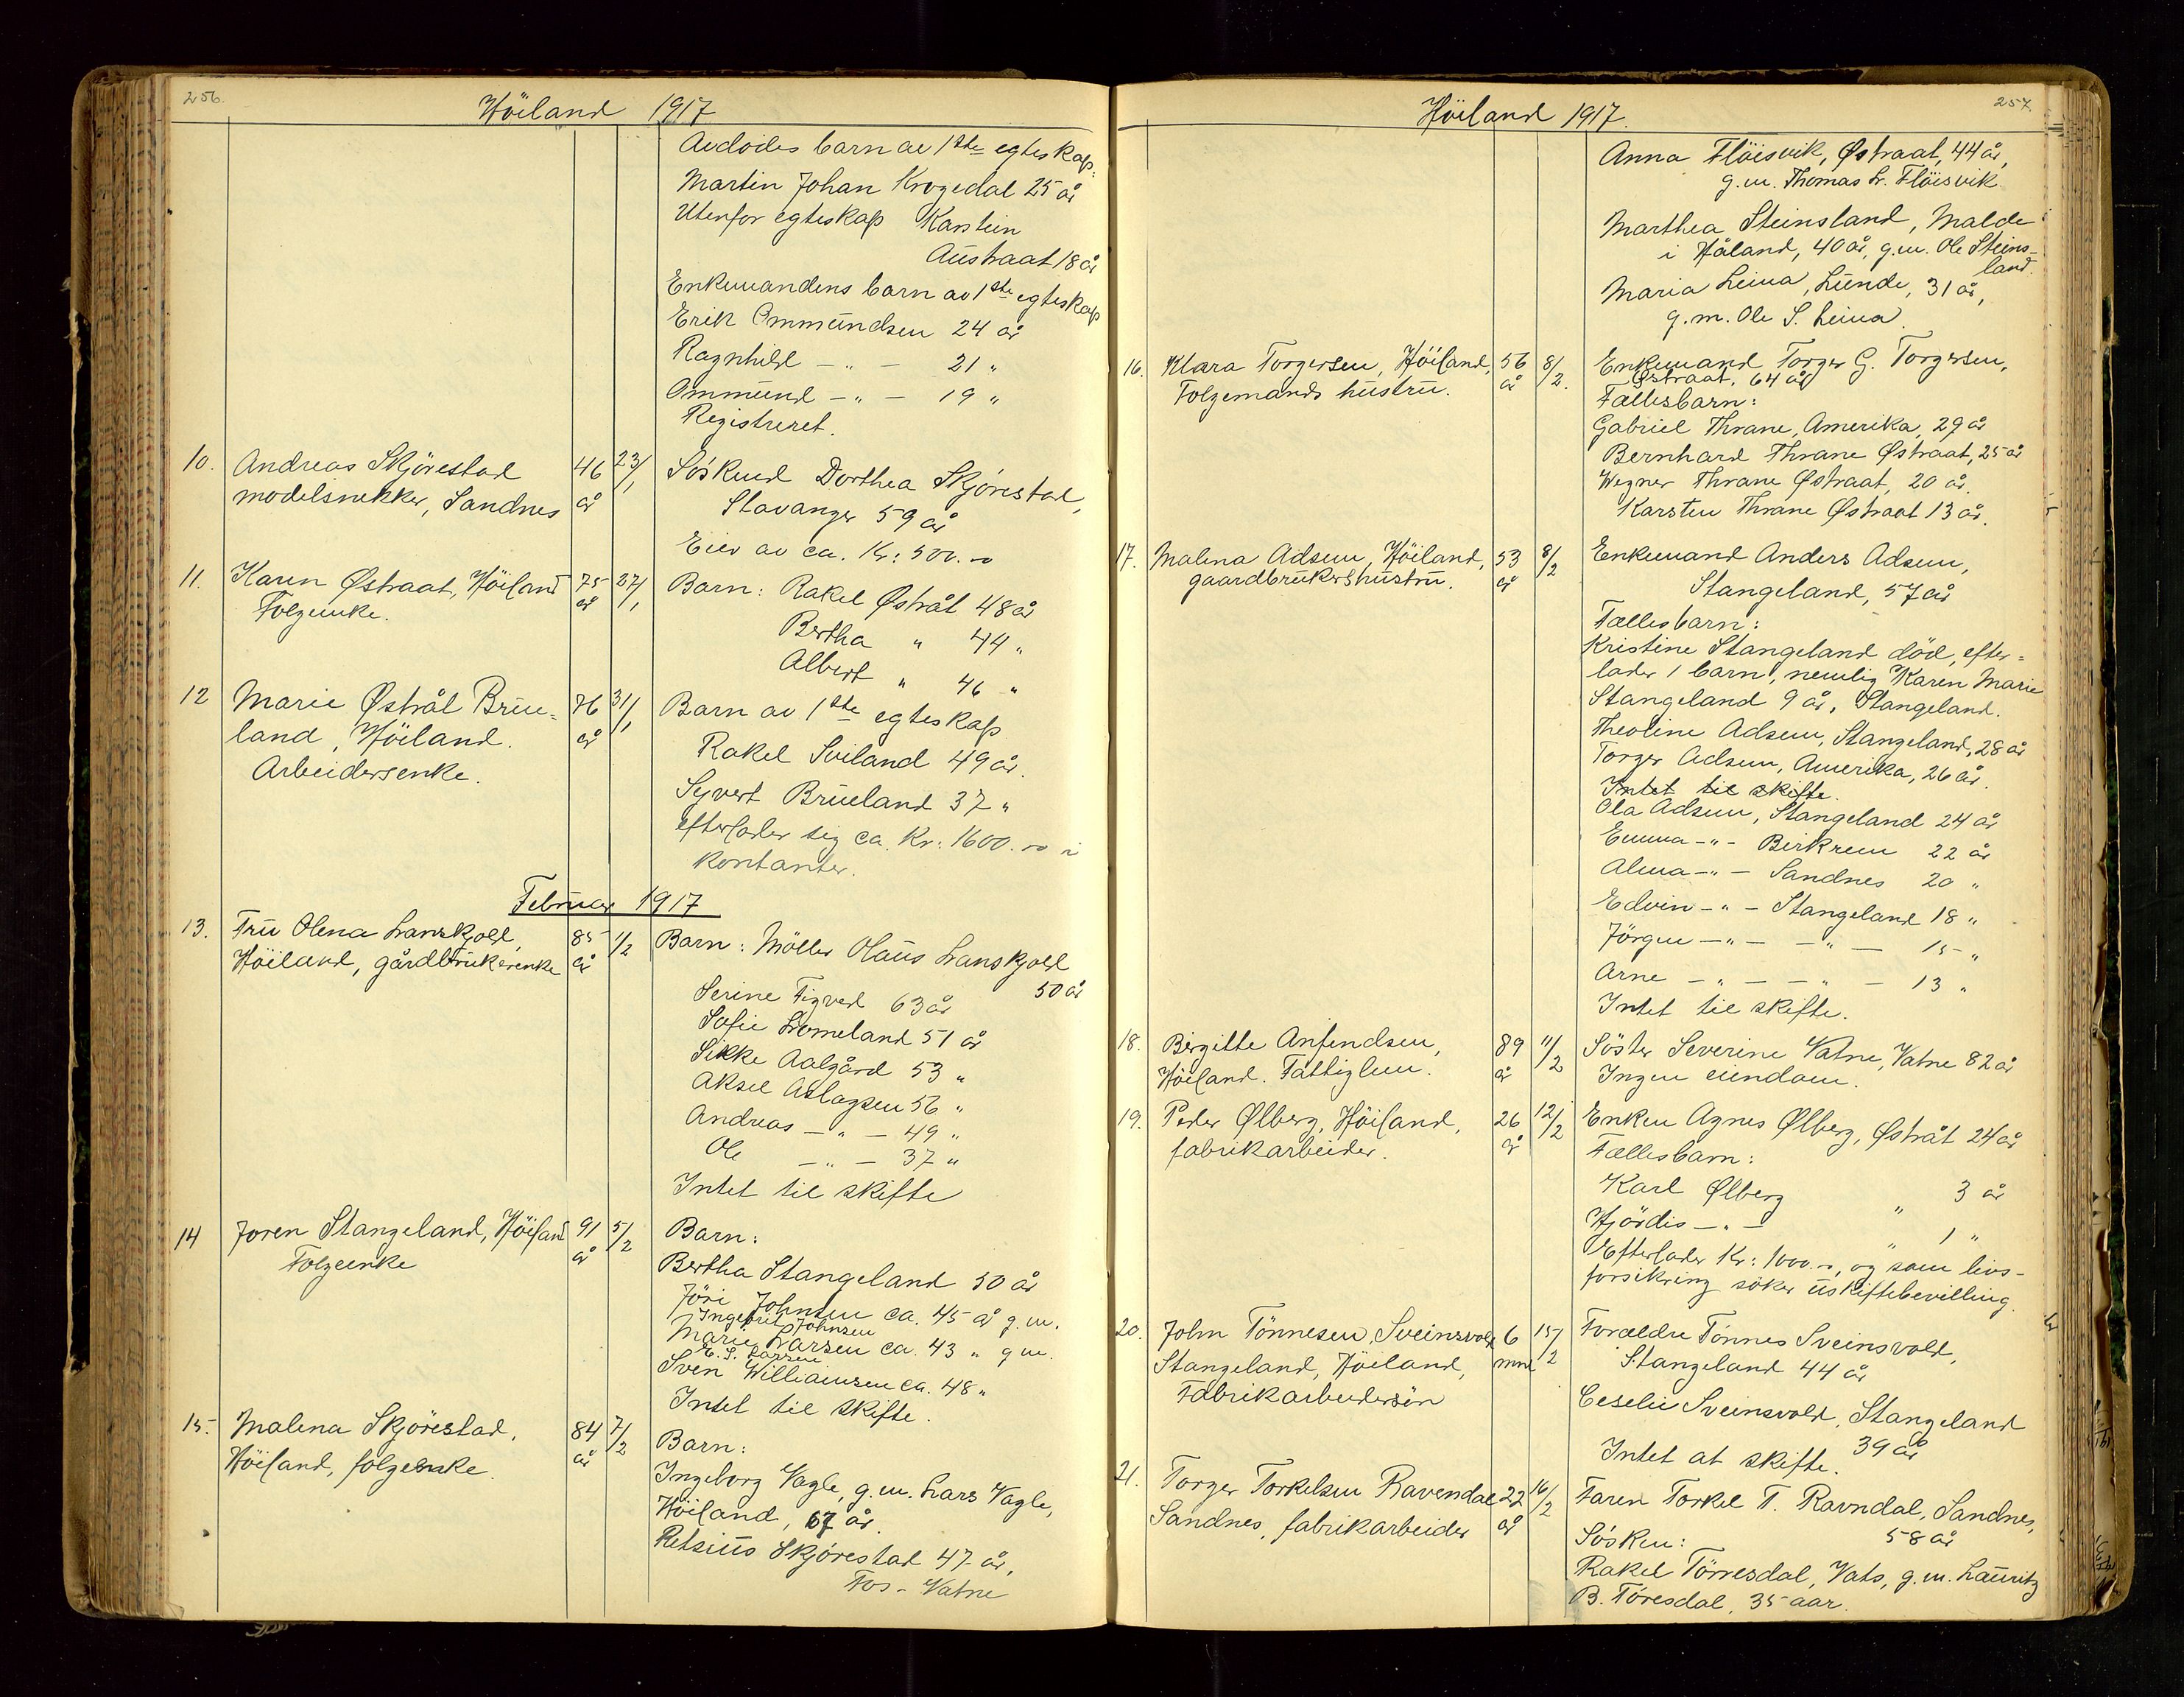 256.
Höiland 1917
Avdödes barn av 1ste egteskap:
Martin Johan Krogedal 25 år
Utenfor egteskap Karstein
Austraat 18 år
Enkemandens barn av 1ste egteskap
Erik Ommundsen 24 år
Ragnhild -"- 21 "
Ommund -"- 19 "
Registreret.
10. Andreas Skjörestad 46 23/1 Söskend Dorthea Skjörestad,
modelsnekker, Sandnes år Stavanger 59 år
Eier av ca. Kr: 500.-
11. Karen Østraat, Höiland 75 27/1 Barn: Rakel Østråt 48 år
Folgeenke. år Bertha " 44 "
Albert " 46 "
12 Marie Østrål Brue- 76 31/1 Barn av 1ste egteskap
land, Höiland. år Rakel Sviland 49 år.
Arbeidersenke.
Syvert Brueland 37 "
efterlader sig ca. Kr: 1600.- i
kontanter.
Februar 1917
13. Fru Olena Lanskjold, 85 1/2 Barn: Möller Olaus Lanskjold
Höiland, gårdbrukerenke år 50 år
Serine Tigved 63 år
Sofie Lomeland 51 år
Sikke Aalgård 53 "
Aksel Aslagsen 56 "
Andreas -"- 49 "
Ole -"- 37 "
Intet til skifte
14 Joren Stangeland, Höiland 91 5/2 Barn:
Folgeenke år
Bertha Stangeland 50 år
Jöri Johnsen ca. 45 år g.m.
Ingebret Johnsen
Marie Larsen ca. 43 " g m.
E. S. Larsen
Sven Williamsen ca. 48 "
Intet til skifte.
15. Malena Skjörestad, 84 7/2 Barn:
Höiland, folgeenke. år
Ingeborg Vagle, g.m. Lars Vagle,
Höiland, 67 år.
Retsius Skjörestad 47 år,
Fos-Vatne
257.
Höiland 1917.
Anna Flöisvik, Østraat, 44 år,
g.m. Thomas Fr. Flöisvik.
Marthea Steinsland, Malde
i Håland, 40 år, g.m. Ole Steins-
land.
Maria Leina, Lunde, 31 år,
g.m. Ole S. Leina.
16. Klara Torgersen, Höiland, 56 8/2. Enkemand Torger G. Torgersen,
Folgemands hustru. år Østraat, 64 år
Fællesbarn:
Gabriel Thrane, Amerika, 29 år
Bernhard Thrane Østraat, 25 år
Wegner Thrane Østraat, 20 år.
Karsten Thrane Østraat 13 år.
17. Malena Adsem, Höiland, 53 8/2 Enkemand Anders Adsem,
gaardbrukershustru. år Stangeland, 57 år
Fællesbarn:
Kristine Stangeland död, efter-
lader 1 barn, nemlig Karen Marie
Stangeland 9 år, Stangeland.
Theoline Adsem, Stangeland, 28 år
Torger Adsem, Amerika, 26 år.
Intet til skifte.
Ola Adsem, Stangeland 24 år
Emma -"- Birkrem 22 år
Alma -"- Sandnes 20 "
Edvin -"- Stangeland 18 "
Jörgen -"- -"- 15 "
Arne -"- -"- 13 "
Intet til skifte.
18. Birgitte Anfendsen, 89 11/2 Söster Severine Vatne, Vatne 82 år
Höiland. Fattiglem. år Ingen eiendom.
19. Peder Ølberg, Höiland, 26 12/2 Enken Agnes Ølberg, Østråt 24 år
fabrikarbeider. år Fællesbarn:
Karl Ølberg " 3 år
Hjördis -"- " 1 "
Efterlader Kr: 1000.-, og som livs-
forsikring söker uskiftebevilling.
20. John Tönnesen Sveinsvold 6 15/2 Forældre Tönnes Sveinsvold,
Stangeland, Höiland, mnd Stangeland 44 år
Fabrikarbeidersön
Ceselie Sveinsvold, Stangeland
39 år
Intet at skifte.
21. Torger Torkelsen Ravendal 22 16/2 Faren Torkel T. Ravndal, Sandnes,
Sandnes, fabrikarbeider år 58 år
Sösken:
Rakel Törresdal, Vats, g.m. Lauritz
B. Töresdal, 35 aar.